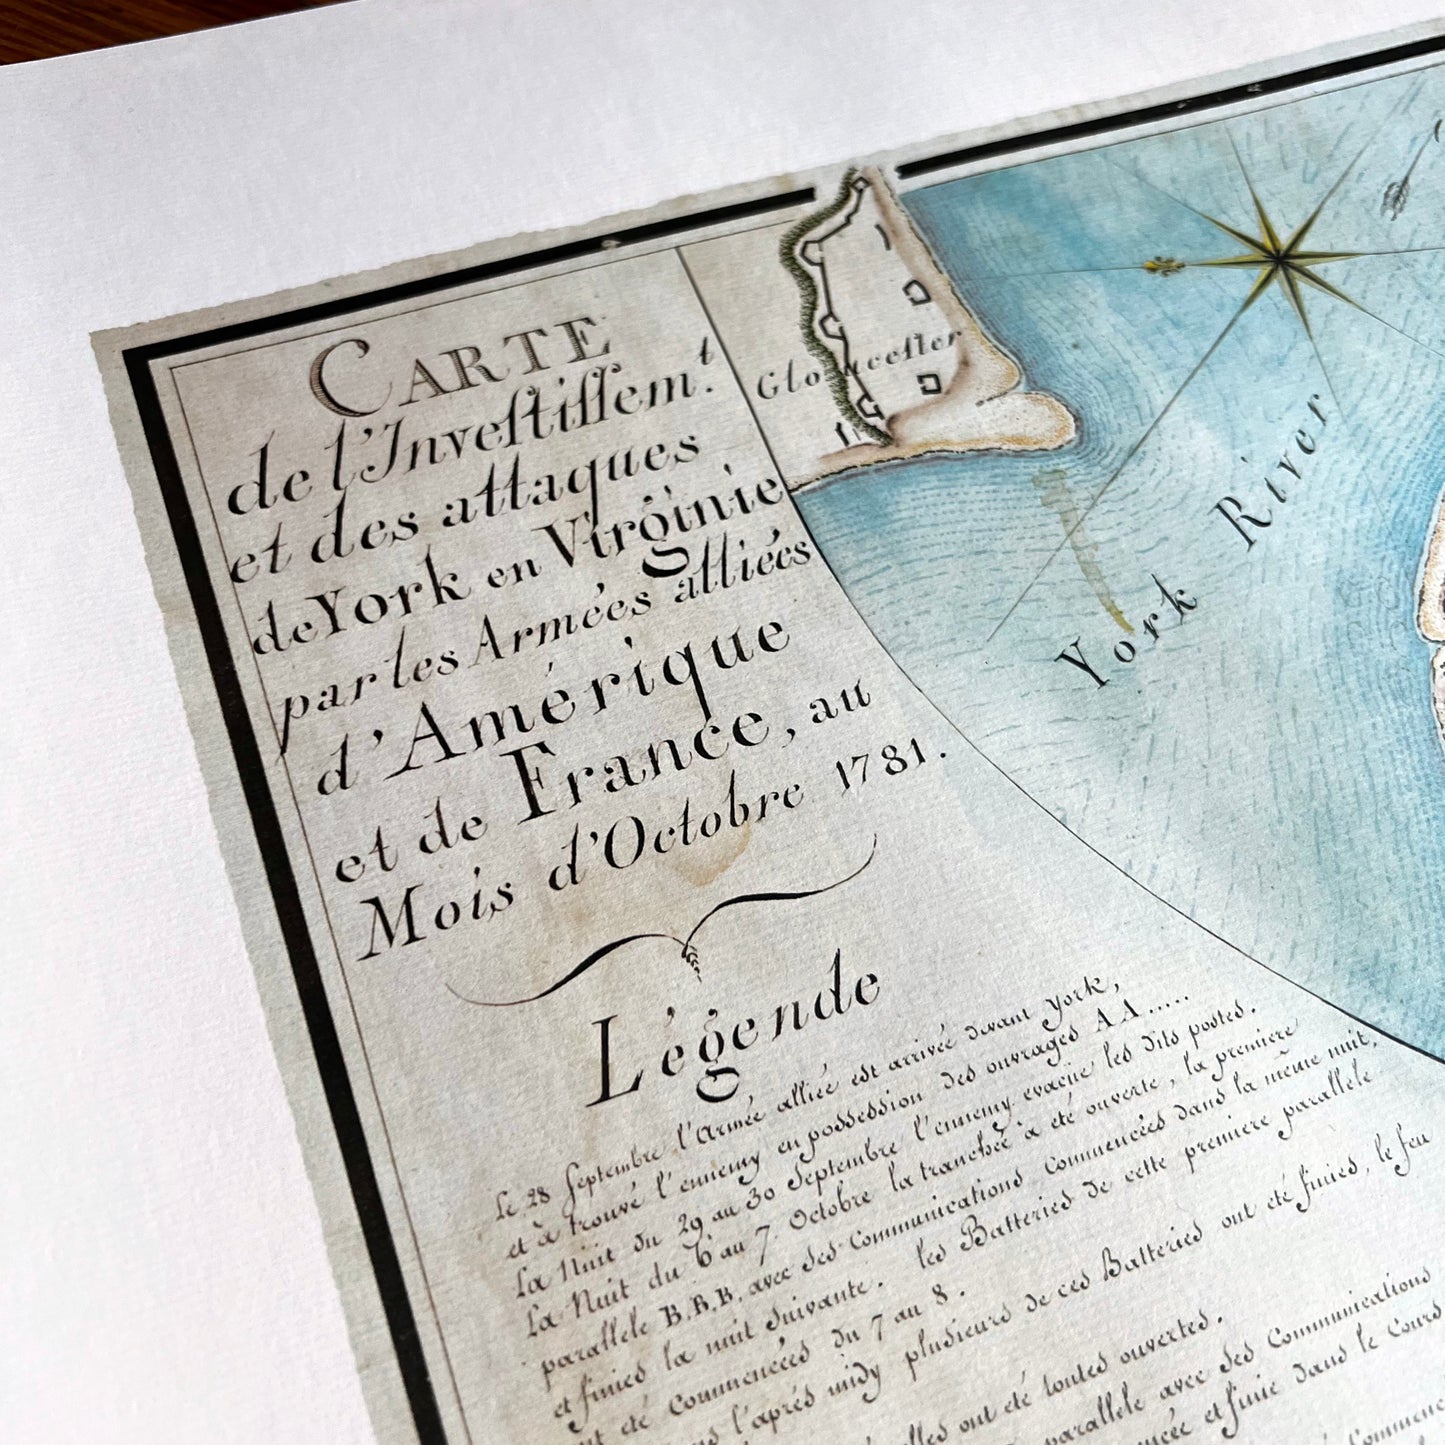 CARTE
de l'Inveſtiſſem.t
et des attaques
de York en Virginie
par les Armées alliées
d'Amérique
et de France, au
Mois d'Octobre 1781.
Légende
Le 28 Septembre, l'Armée alliée est arrivée devant York,
et à trouvé l'ennemy en possession des ouvrages AA.....
La Nuit du 29 au 30 Septembre l'ennemy evacue les dits postes.
La Nuit du 6 au 7 Octobre la tranchée a été ouverte, la premiere
parallele B.B.B. avec des Communications Commencées dans la même nuit,
et finies la nuit suivante. les Batteries de cette premiere parallele
été Commencées du 7 au 8.
l'après midy plusieurs de ces Batteries ont été finies, le feu
ont été toutes ouvertes.
parallele avec des Communications
et finie dans le Cours
Glouceſter
York River